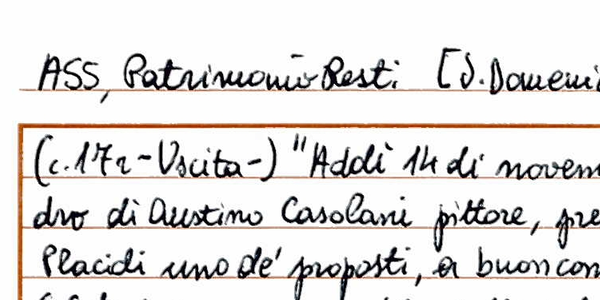 ASS, Patrimonio Resti [S. Domeni
(c. 17r - Uscita -) "Addì 14 di novem
dro di Austino Casolani pittore, pre
Placidi uno de' proposti, a buon con